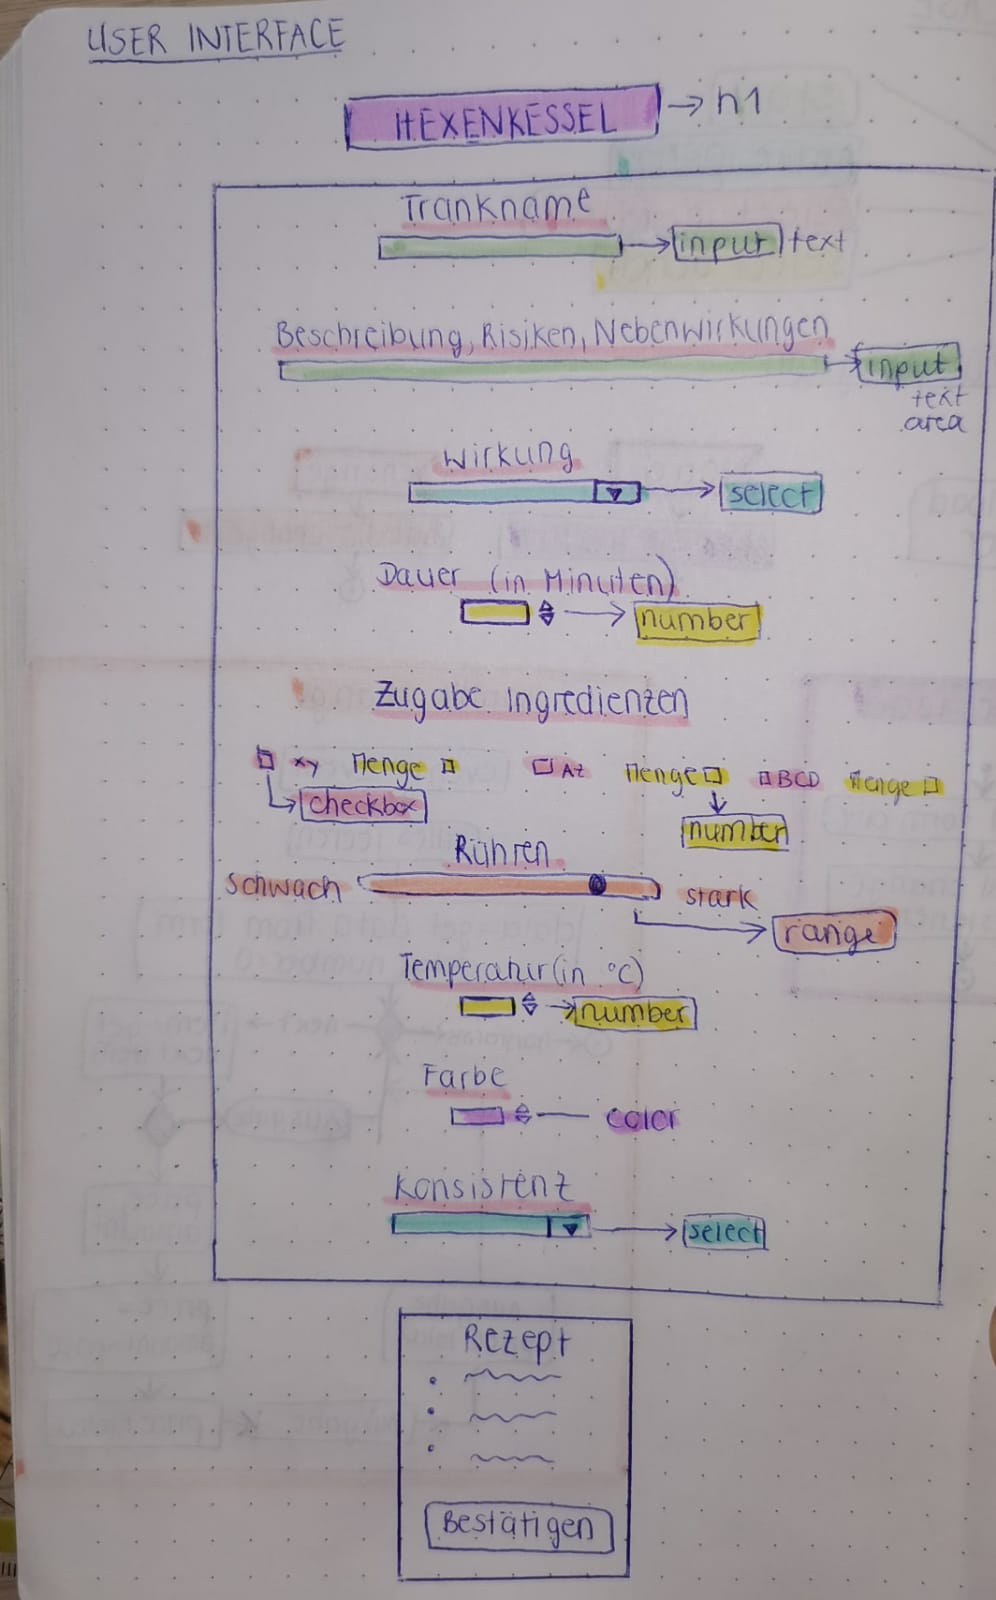 USER INTERFACE
HEXENKESSEL → h1
Trankname
→ input text
Beschreibung, Risiken, Nebenwirkungen
→ input
text
area
Wirkung
→ select
Dauer (in Minuten)
→ number
Zugabe Ingredienzen
xy Menge AZ Menge BCD Menge
checkbox
number
Rühren
schwach stark
range
Temperatur (in °C)
→ number
Farbe
color
Konsistenz
→ select
Rezept
Bestätigen